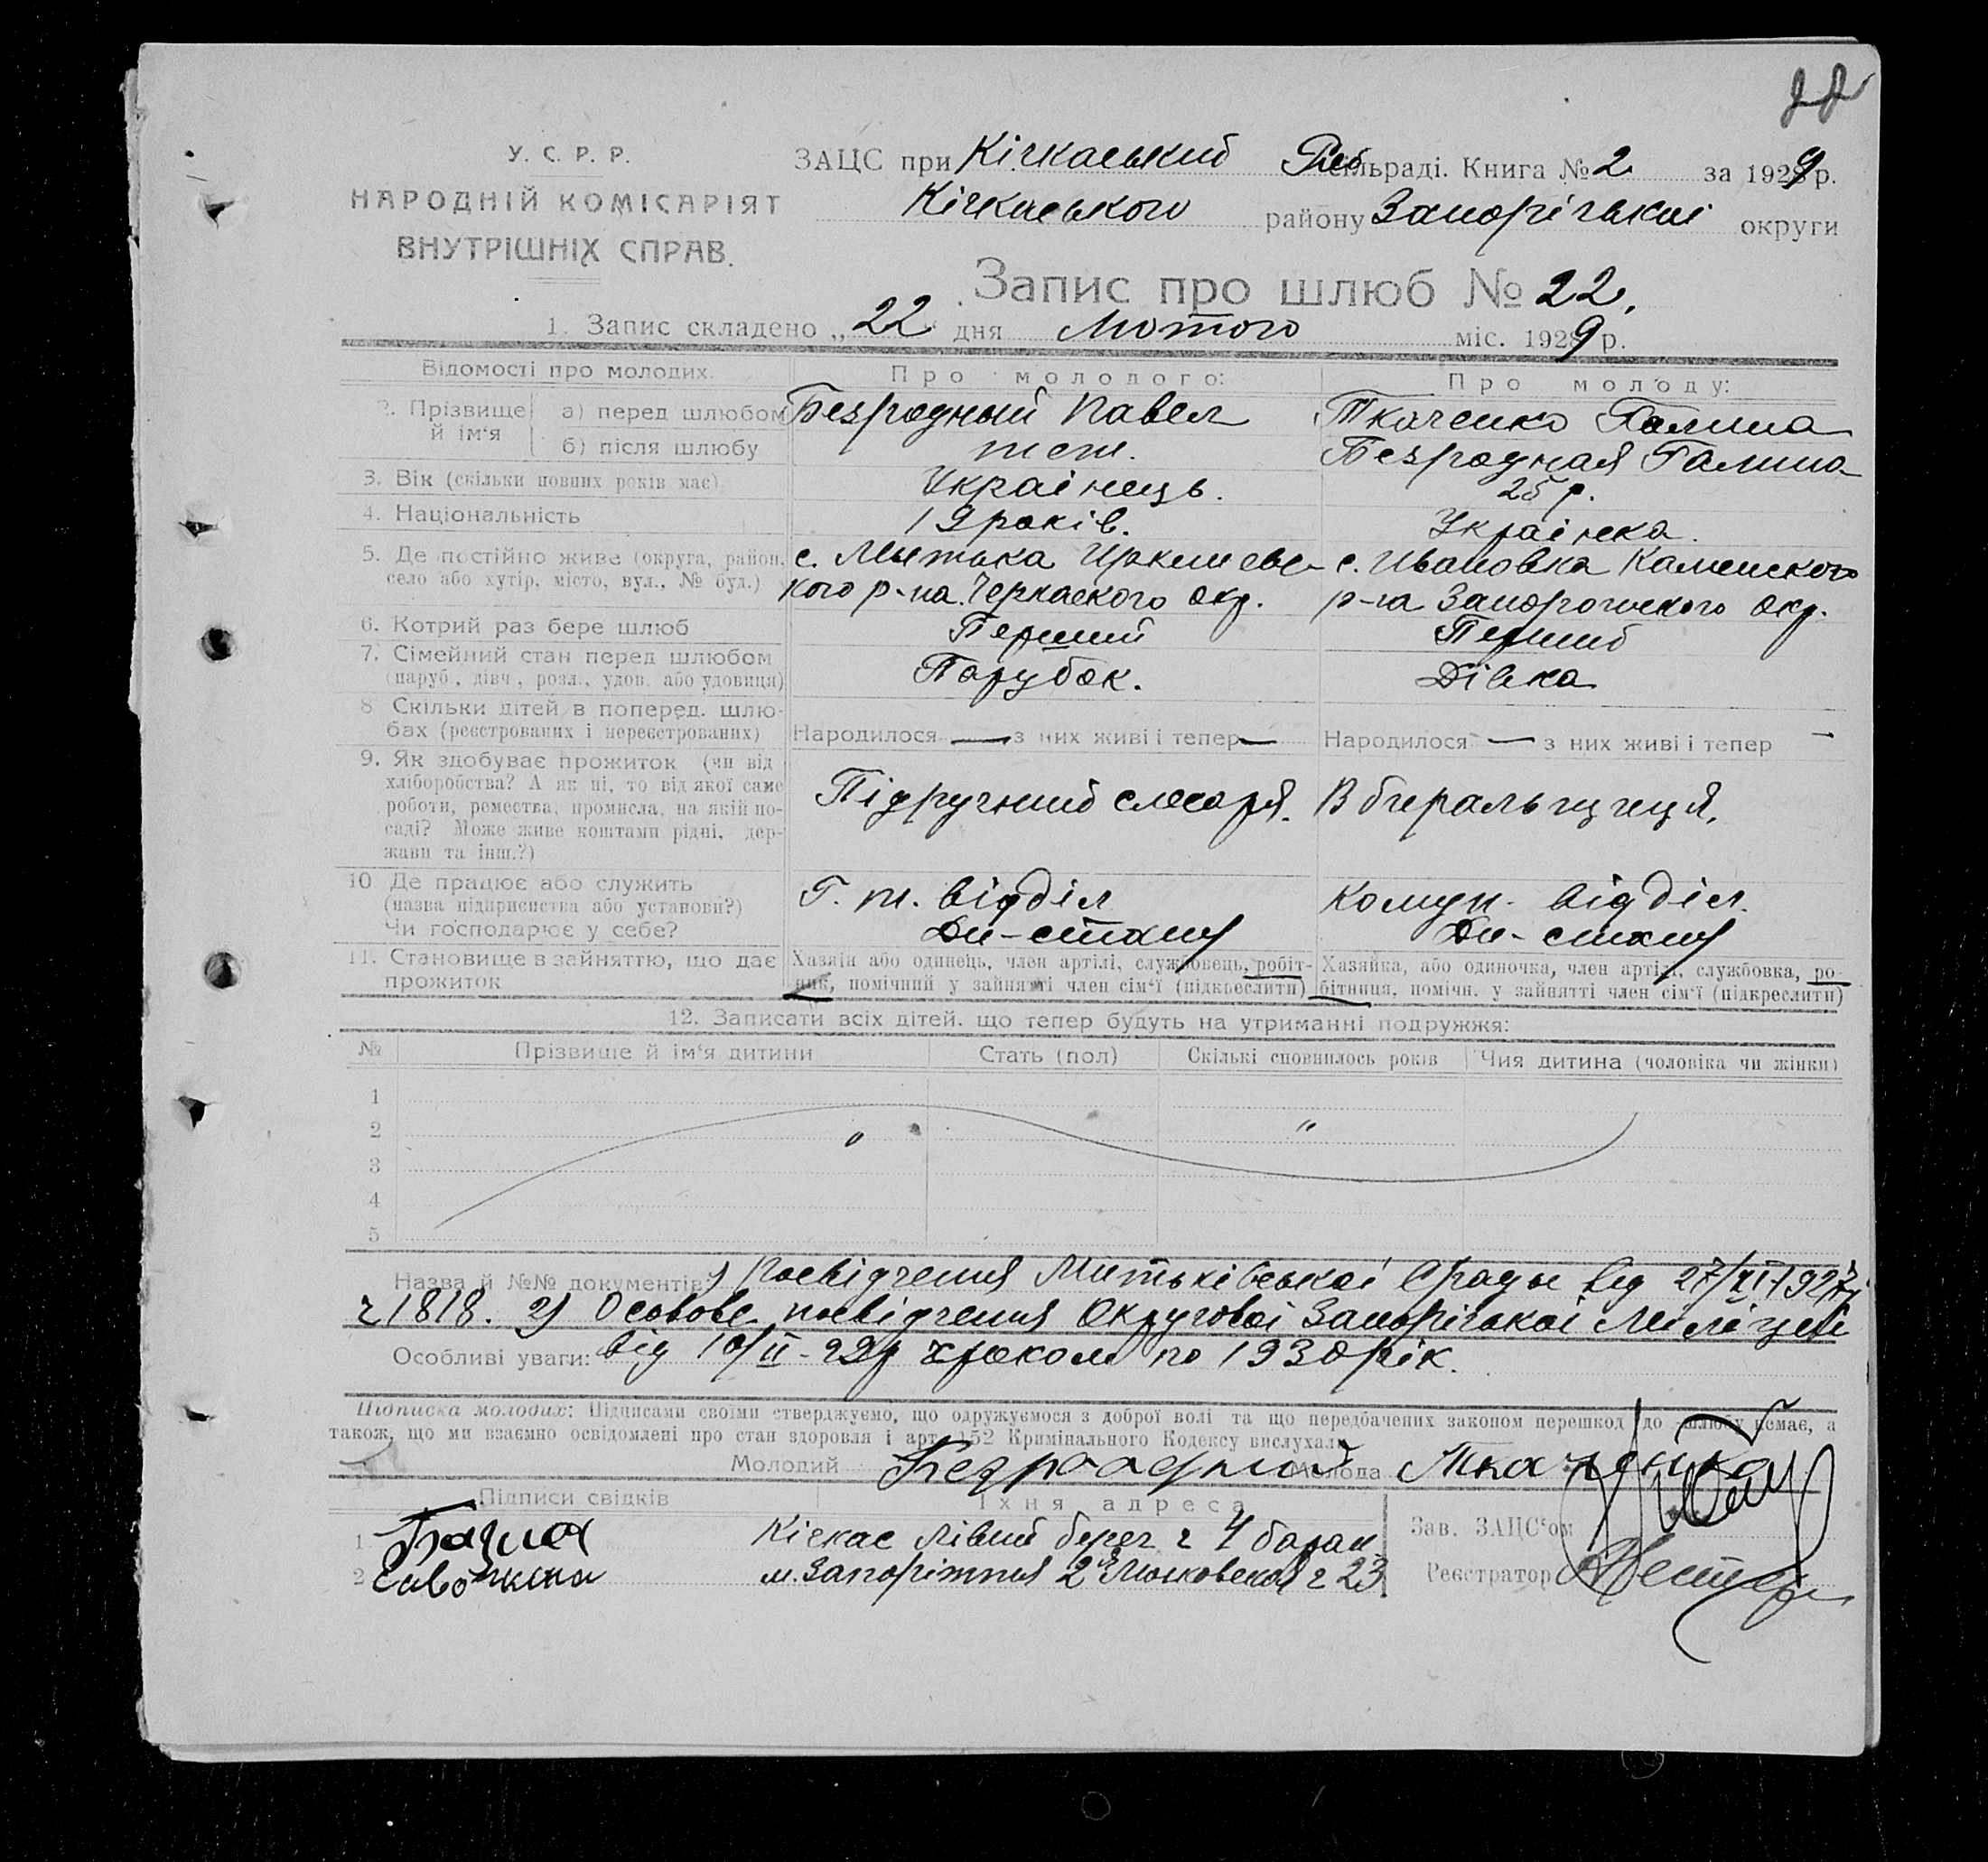 22
У. С. Р. Р.
НАРОДНІЙ КОМІСАРІЯТ
ВНУТРІШНІХ СПРАВ.
ЗАЦС при Кічкаський сільраді. Книга № 2 за 1929 р.
Кічкаського району Запорізької округи
Запис про шлюб № 22.
1. Запис складено „22" дня Лютого міс. 1929 р.
Відомості про молодих. Про молодого: Про молоду:
2. Прізвище й ім'я а) перед шлюбом Безродный Павел Ткаченко Галина
б) після шлюбу теж. Безродная Галина
3. Вік (скільки повних років має) Українець. 25 р.
4. Національність 19 років. Українка.
5. Де постійно живе (округа, район, село або хутір, місто, вул., № буд.) с. Мытька Иркліевс- с. Ивановка Каменского
кого р-на. Черкаского Окр. р-на Запорожского Окр.
6. Котрий раз бере шлюб Перший Перший
7. Сімейний стан перед шлюбом (паруб., дівч., розл., удов. або удовиця) Парубок. Дівка
8 Скільки дітей в поперед. шлюбах (реєстрованих і нереєстрованих) Народилося — з них живі і тепер — Народилося — з них живі і тепер —
9. Як здобуває прожиток (чи від
хліборобства? А як ні, то від якої саме
роботи, ремества, промисла, на якій по-
саді? Може живе коштами рідні, дер-
жави та інш.?)
Підручний слесаря. Вбиральщиця.
10. Де працює або служить
(назва підприємства або установи?)
Чи господарює у себе?
Г. т. відділ Комун. відділ
11. Становище в зайняттю, що дає
прожиток
Хазяїн або одинець, член артілі, службовець, робіт-
ник, помічний у зайнятті член сім'ї (підкреслити)
Хазяйка, або одиночка, член артілі, службовка, ро-
бітниця, помічн. у зайнятті член сім'ї (підкреслити)
12. Записати всіх дітей, що тепер будуть на утриманні подружжя:
№ Прізвище й ім'я дитини Стать (пол) Скількі сповнилось років Чия дитина (чоловіка чи жінки)
1
2 " "
3
4
5
Назва й №№ документів: 1) Посвідчення Митьківської Сради від 27/XI-1927
ч 1818. 2) Особове посвідчення Округової Запорізької Міліції
Особливі уваги: від 10/II-29р строком по 1930 рік.
Підписка молодих: Підписами своїми стверджуємо, що одружуємося з доброї волі та що передбачених законом перешкод до шлюбу немає, а
також, що ми взаємно освідомлені про стан здоровля і арт. 152 Кримінального Кодексу вислухали
Молодий Безродний Молода Ткаченко
Підписи свідків Їхня адреса
1 Кічкас лівий берег ч 4 барак Зав. ЗАЦС'ом
2 м. Запоріжжя ч 23 Реєстратор